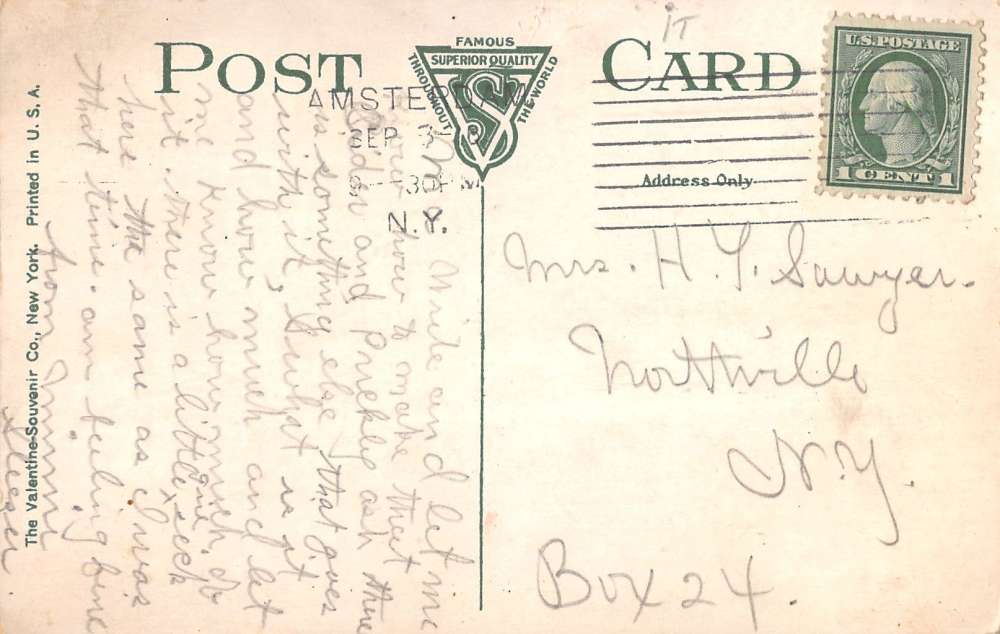 POST CARD
FAMOUS
SUPERIOR QUALITY
THROUGHOUT THE WORLD
VS
U.S. POSTAGE
1 CENT 1
AMSTERDAM
SEP 3
30 PM
N.Y.
Address Only
IT
Mrs. H. Y. Sawyer.
Northville
N.Y.
Box 24.
Ma write and let me
know how to make that
and Prickly ash there
is something else that goes
with it, what is it
and how much and let
me know how much of
it. there is a little
girl sick
here the same as I was
that time. am feeling fine
from
The Valentine-Souvenir Co., New York. Printed in U. S. A.